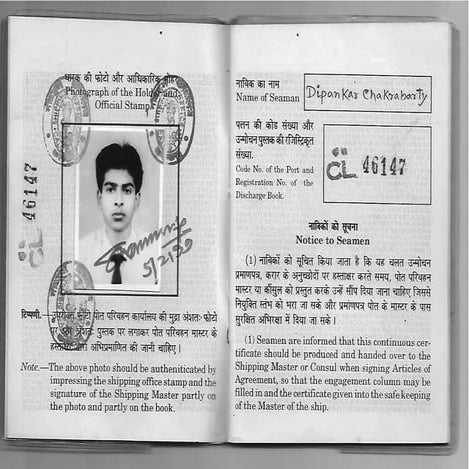 धारक की फोटो और आधिकारिक मोहर
Photograph of the Holder and
Official Stamp
46147
CL
5/2/20
टिप्पणी. - उपरोक्त फोटो पोत परिवहन कार्यालय की मुद्रा अंशतः फोटो
पर और अंशतः पुस्तक पर लगाकर पोत परिवहन मास्टर के
हस्ताक्षर द्वारा अभिप्रमाणित की जानी चाहिए।
Note.—The above photo should be authenticated by
impressing the shipping office stamp and the
signature of the Shipping Master partly on
the photo and partly on the book.
नाविक का नाम
Name of Seaman
Dipankar Chakrabarty
पत्तन की कोड संख्या और
उन्मोचन पुस्तक की रजिस्ट्रीकृत
संख्या.
Code No. of the Port and
Registration No. of the
Discharge Book.
CL 46147
नाविकों को सूचना
Notice to Seamen
(1) नाविकों को सूचित किया जाता है कि यह चलत उन्मोचन
प्रमाणपत्र, करार के अनुच्छेदों पर हस्ताक्षर करते समय, पोत परिवहन
मास्टर या कौंसुल को प्रस्तुत करके उन्हें सौंप दिया जाना चाहिए जिससे
नियुक्ति स्तंभ को भरा जा सके और प्रमाणपत्र पोत के मास्टर के पास
सुरक्षित अभिरक्षा में दिया जा सके।
(1) Seamen are informed that this continuous cer-
tificate should be produced and handed over to the
Shipping Master or Consul when signing Articles of
Agreement, so that the engagement column may be
filled in and the certificate given into the safe keeping
of the Master of the ship.